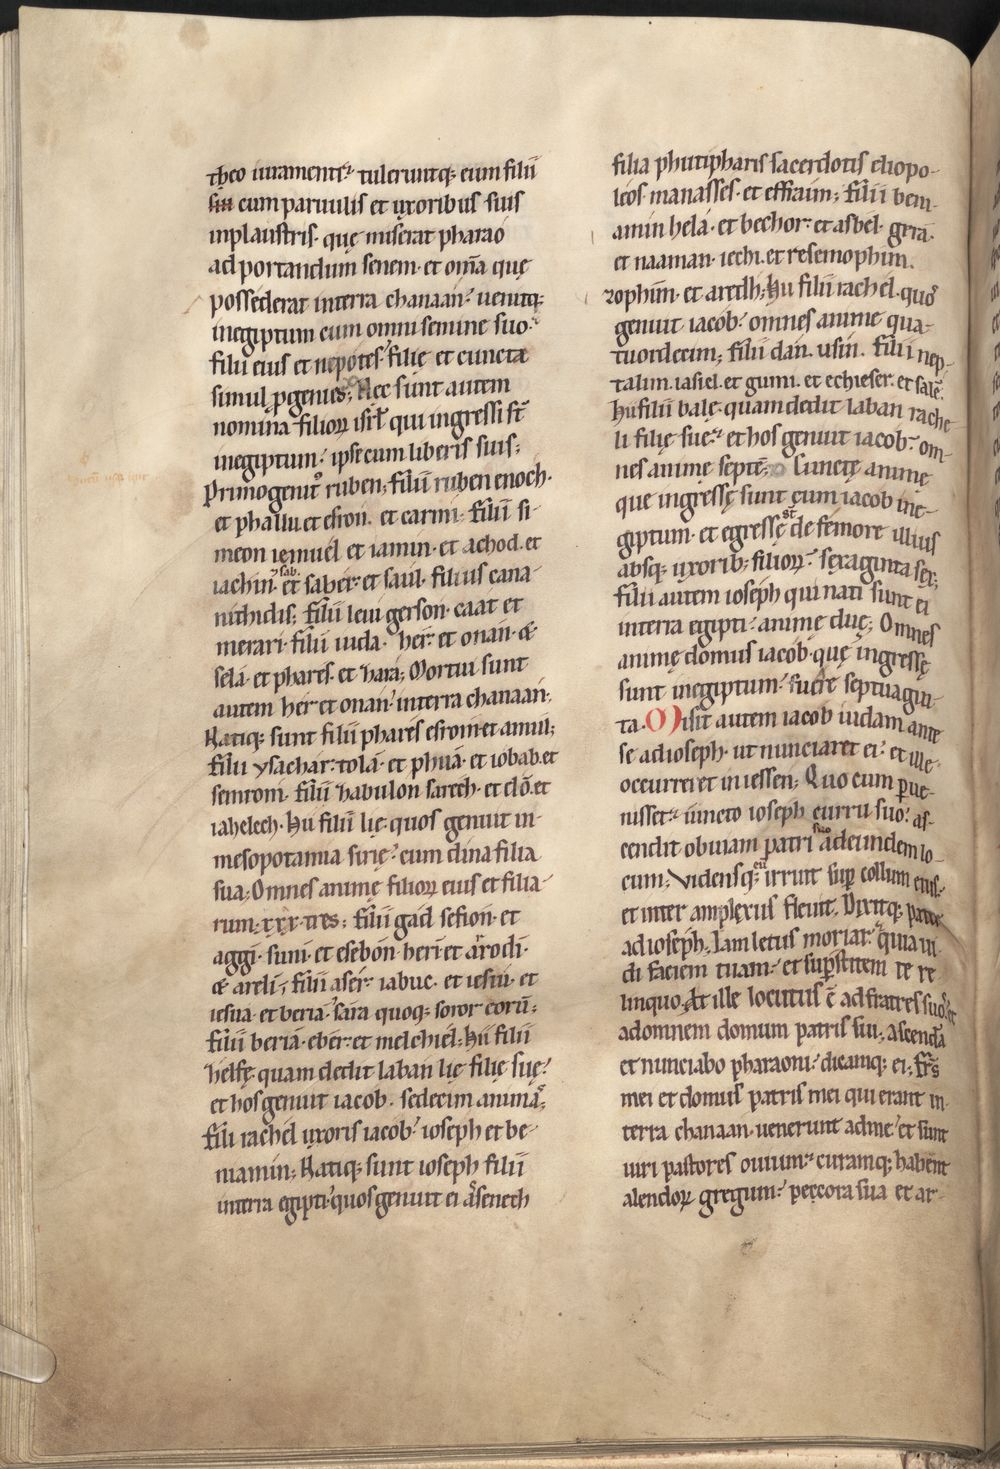 theo iuramento tuleruntq; eum filii
sui cum paruulis et uxoribus suis
inplaustris. quę miserat pharao
adportandum senem. et om̅a quę
possederat interra chanaan. uenitq;
inegiptum cum omni semine suo.
filii eius et nepotes. filię et cuncta
simul p̱genies; Hec sunt autem
nomina filioꝝ isrł qui ingressi st̅
inegiptum. ipse cum liberis suis;
Primogenitꝰ ruben; filii ruben enoch.
et phallu et esron. et carmi; filii si-
meon iemuel et iamin. et achod. et
iachin. et saher. et saul. filius cana-
nithidis; filii leui gerson. caat et
merari. filii iuda. her. et onan. &
sela. et phares. et hara; Mortui sunt
autem her et onan. interra chanaan;
Natiq; sunt filii phares esrom et amul;
filii ysachar. tola. et phua. et iobab. et
semron. filii habulon sareth. et elo̅. et
iahelech. Hii filii lię. quos genuit in-
mesopotamia sirię. cum dina filia
sua; Omnes animę filioꝝ eius et filia-
rum. xxx. tres; filii gad sefion. et
aggi. suni. et esebon. heri et arodi.
& areli; filii aser. iabuc. et iesui. et
iesua. et beria. sara quoq; soror eoru̅;
filii beria. eber. et melchiel; Hii filii
helfę quam dedit laban lię filię suę.
et hos genuit iacob. sedecim animas;
filii rachel uxoris iacob. ioseph et be-
niamin; Natiq; sunt ioseph filii
interra egipti. quos genuit ei aseneth
filia phutipharis sacerdotis eliopo-
leos. manasses. et effraim; filii beni-
amin hela. et bechor. et asbel. gera.
et naaman. iechi. et resemophim.
zophim. et aredh; Hii filii rachel. quos
genuit iacob. omnes anime qua-
tuordecim; filii dan. usin. filii nep-
talim. iasiel. et guni. et echieser. et sale̅.
Hii filii balę. quam dedit laban rache-
li filię sue. et hos genuit iacob. om-
nes animę septe̅; Cunctę animę
que ingressę sunt cum iacob ine-
giptum. et egressę st̅ de femore illius
absq; uxorib; filioꝝ. sexaginta sex;
filii autem ioseph qui nati sunt ei
interra egipti. animę duę; Omnes
animę domus iacob. quę ingressę
sunt inegiptum. fuere septuagin-
ta. Misit autem iacob iudam ante
se adioseph. ut nunciaret ei. et ille
occurreret iniessen; Quo cum ꝑue-
nisset. iuncto ioseph curru suo. as-
cendit obuiam patri suo adeundem lo-
cum; Vidensq; eu̅ irruit suꝑ collum eius.
et inter amplexus fleuit. Dixitq; pater
adioseph; Iam letus moriar. quia ui-
di faciem tuam. et suꝑstitem te re-
linquo. At ille locutus e̅ adfratres suos. et
adomnem domum patris sui; Ascenda̅
et nunciabo pharaoni. dicamq; ei; Fr̅s
mei et domus patris mei qui erant in
terra chanaan. uenerunt adme. et sunt
uiri pastores ouium. curamq; habent
alendoꝝ gregum. peccora sua et ar-